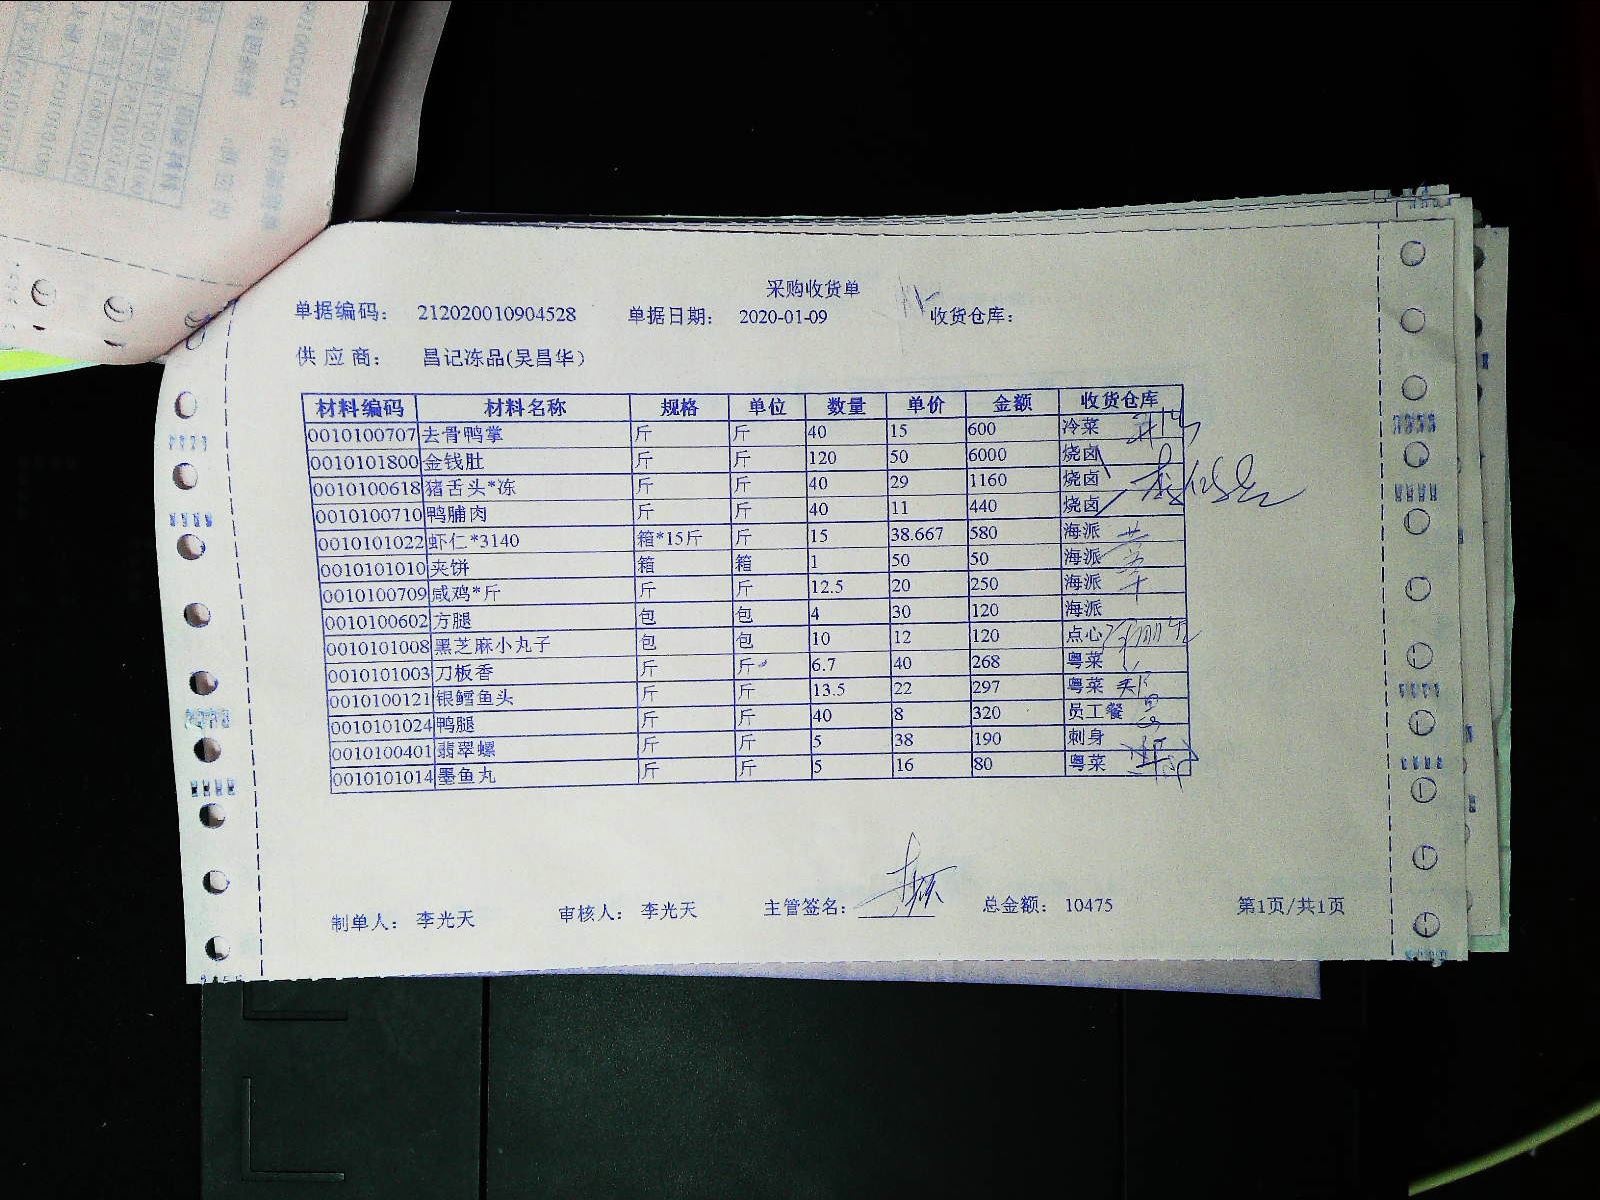 采购收货单
单据编码： 212020010904528 单据日期： 2020-01-09 收货仓库：
供 应 商： 昌记冻品(吴昌华)
材料编码 材料名称 规格 单位 数量 单价 金额 收货仓库
0010100707 去骨鸭掌 斤 斤 40 15 600 冷菜
0010101800 金钱肚 斤 斤 120 50 6000 烧卤
0010100618 猪舌头*冻 斤 斤 40 29 1160 烧卤
0010100710 鸭脯肉 斤 斤 40 11 440 烧卤
0010101022 虾仁*3140 箱*15斤 斤 15 38.667 580 海派
0010101010 夹饼 箱 箱 1 50 50 海派
0010100709 咸鸡*斤 斤 斤 12.5 20 250 海派
0010100602 方腿 包 包 4 30 120 海派
0010101008 黑芝麻小丸子 包 包 10 12 120 点心
0010101003 刀板香 斤 斤 6.7 40 268 粤菜
0010100121 银鳕鱼头 斤 斤 13.5 22 297 粤菜
0010101024 鸭腿 斤 斤 40 8 320 员工餐
0010100401 翡翠螺 斤 斤 5 38 190 刺身
0010101014 墨鱼丸 斤 斤 5 16 80 粤菜
制单人： 李光天 审核人： 李光天 主管签名： 总金额： 10475 第1页/共1页